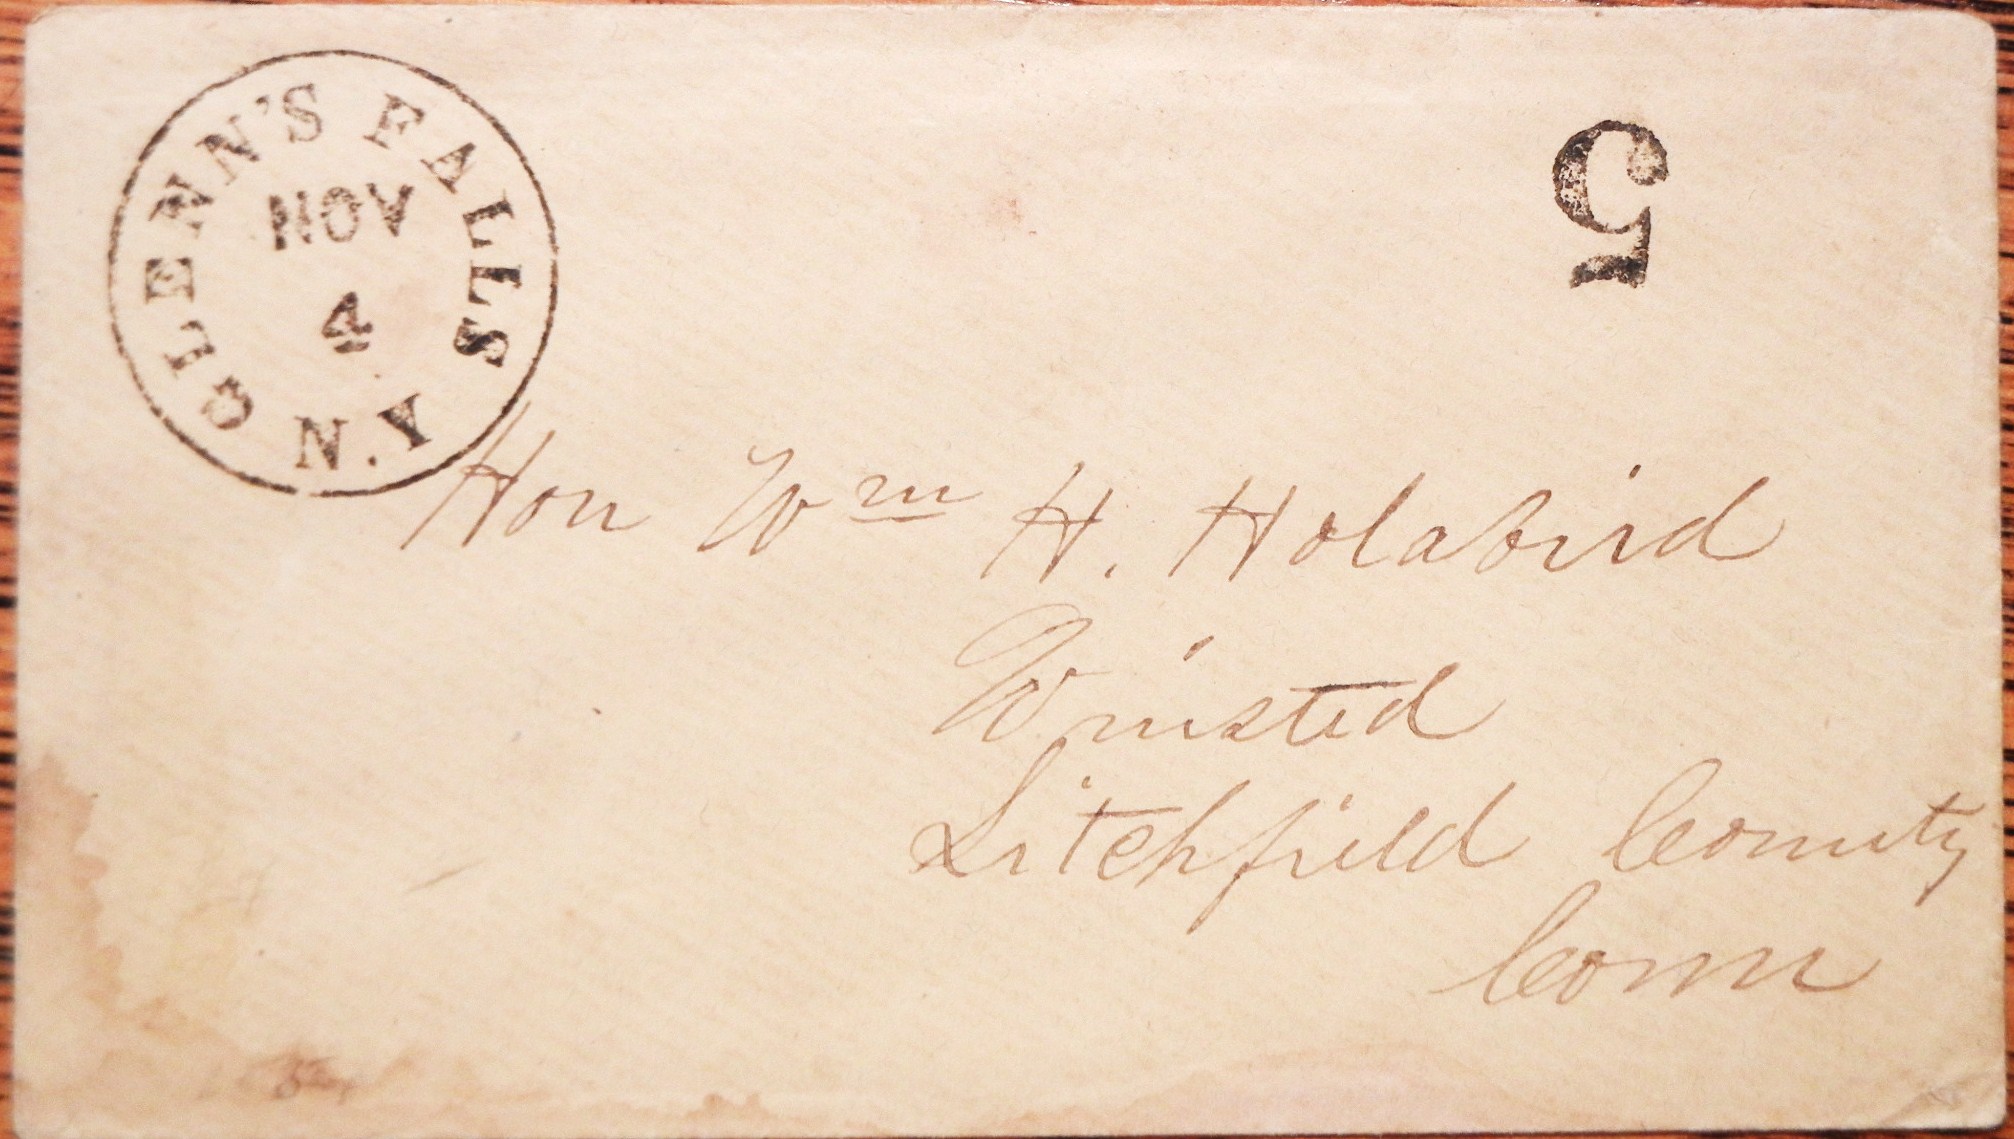 GLENN'S FALLS N.Y
NOV
4
5
Hon Wm H. Holabird
Winsted
Litchfield County
Conn